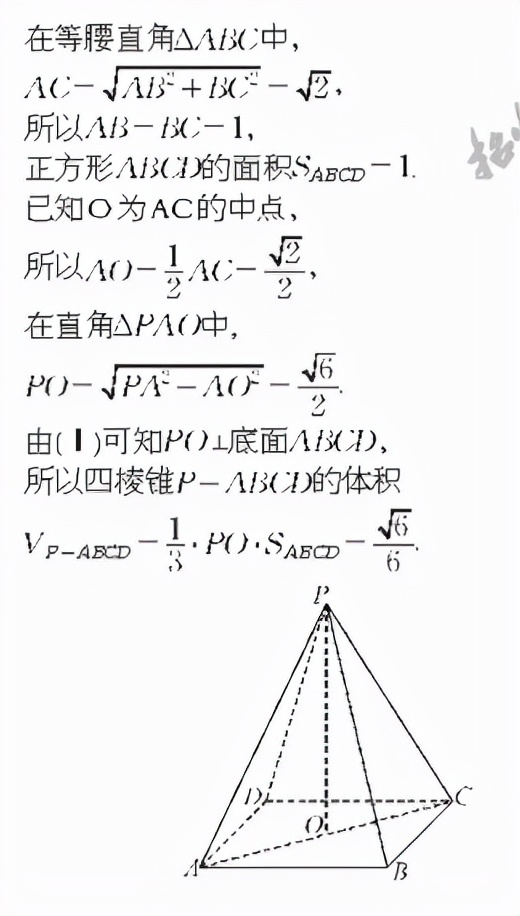 在等腰直角△ABC中,
AC=√(AB²+BC²)=√2,
所以AB=BC=1,
正方形ABCD的面积S_{ABCD}=1.
已知O为AC的中点,
所以AO=1/2AC=√2/2,
在直角△PAO中,
PO=√(PA²-AO²)=√6/2.
由(Ⅰ)可知PO⊥底面ABCD,
所以四棱锥P-ABCD的体积
V_{P-ABCD}=1/3·PO·S_{ABCD}=√6/6.
P
D
C
O
A
B